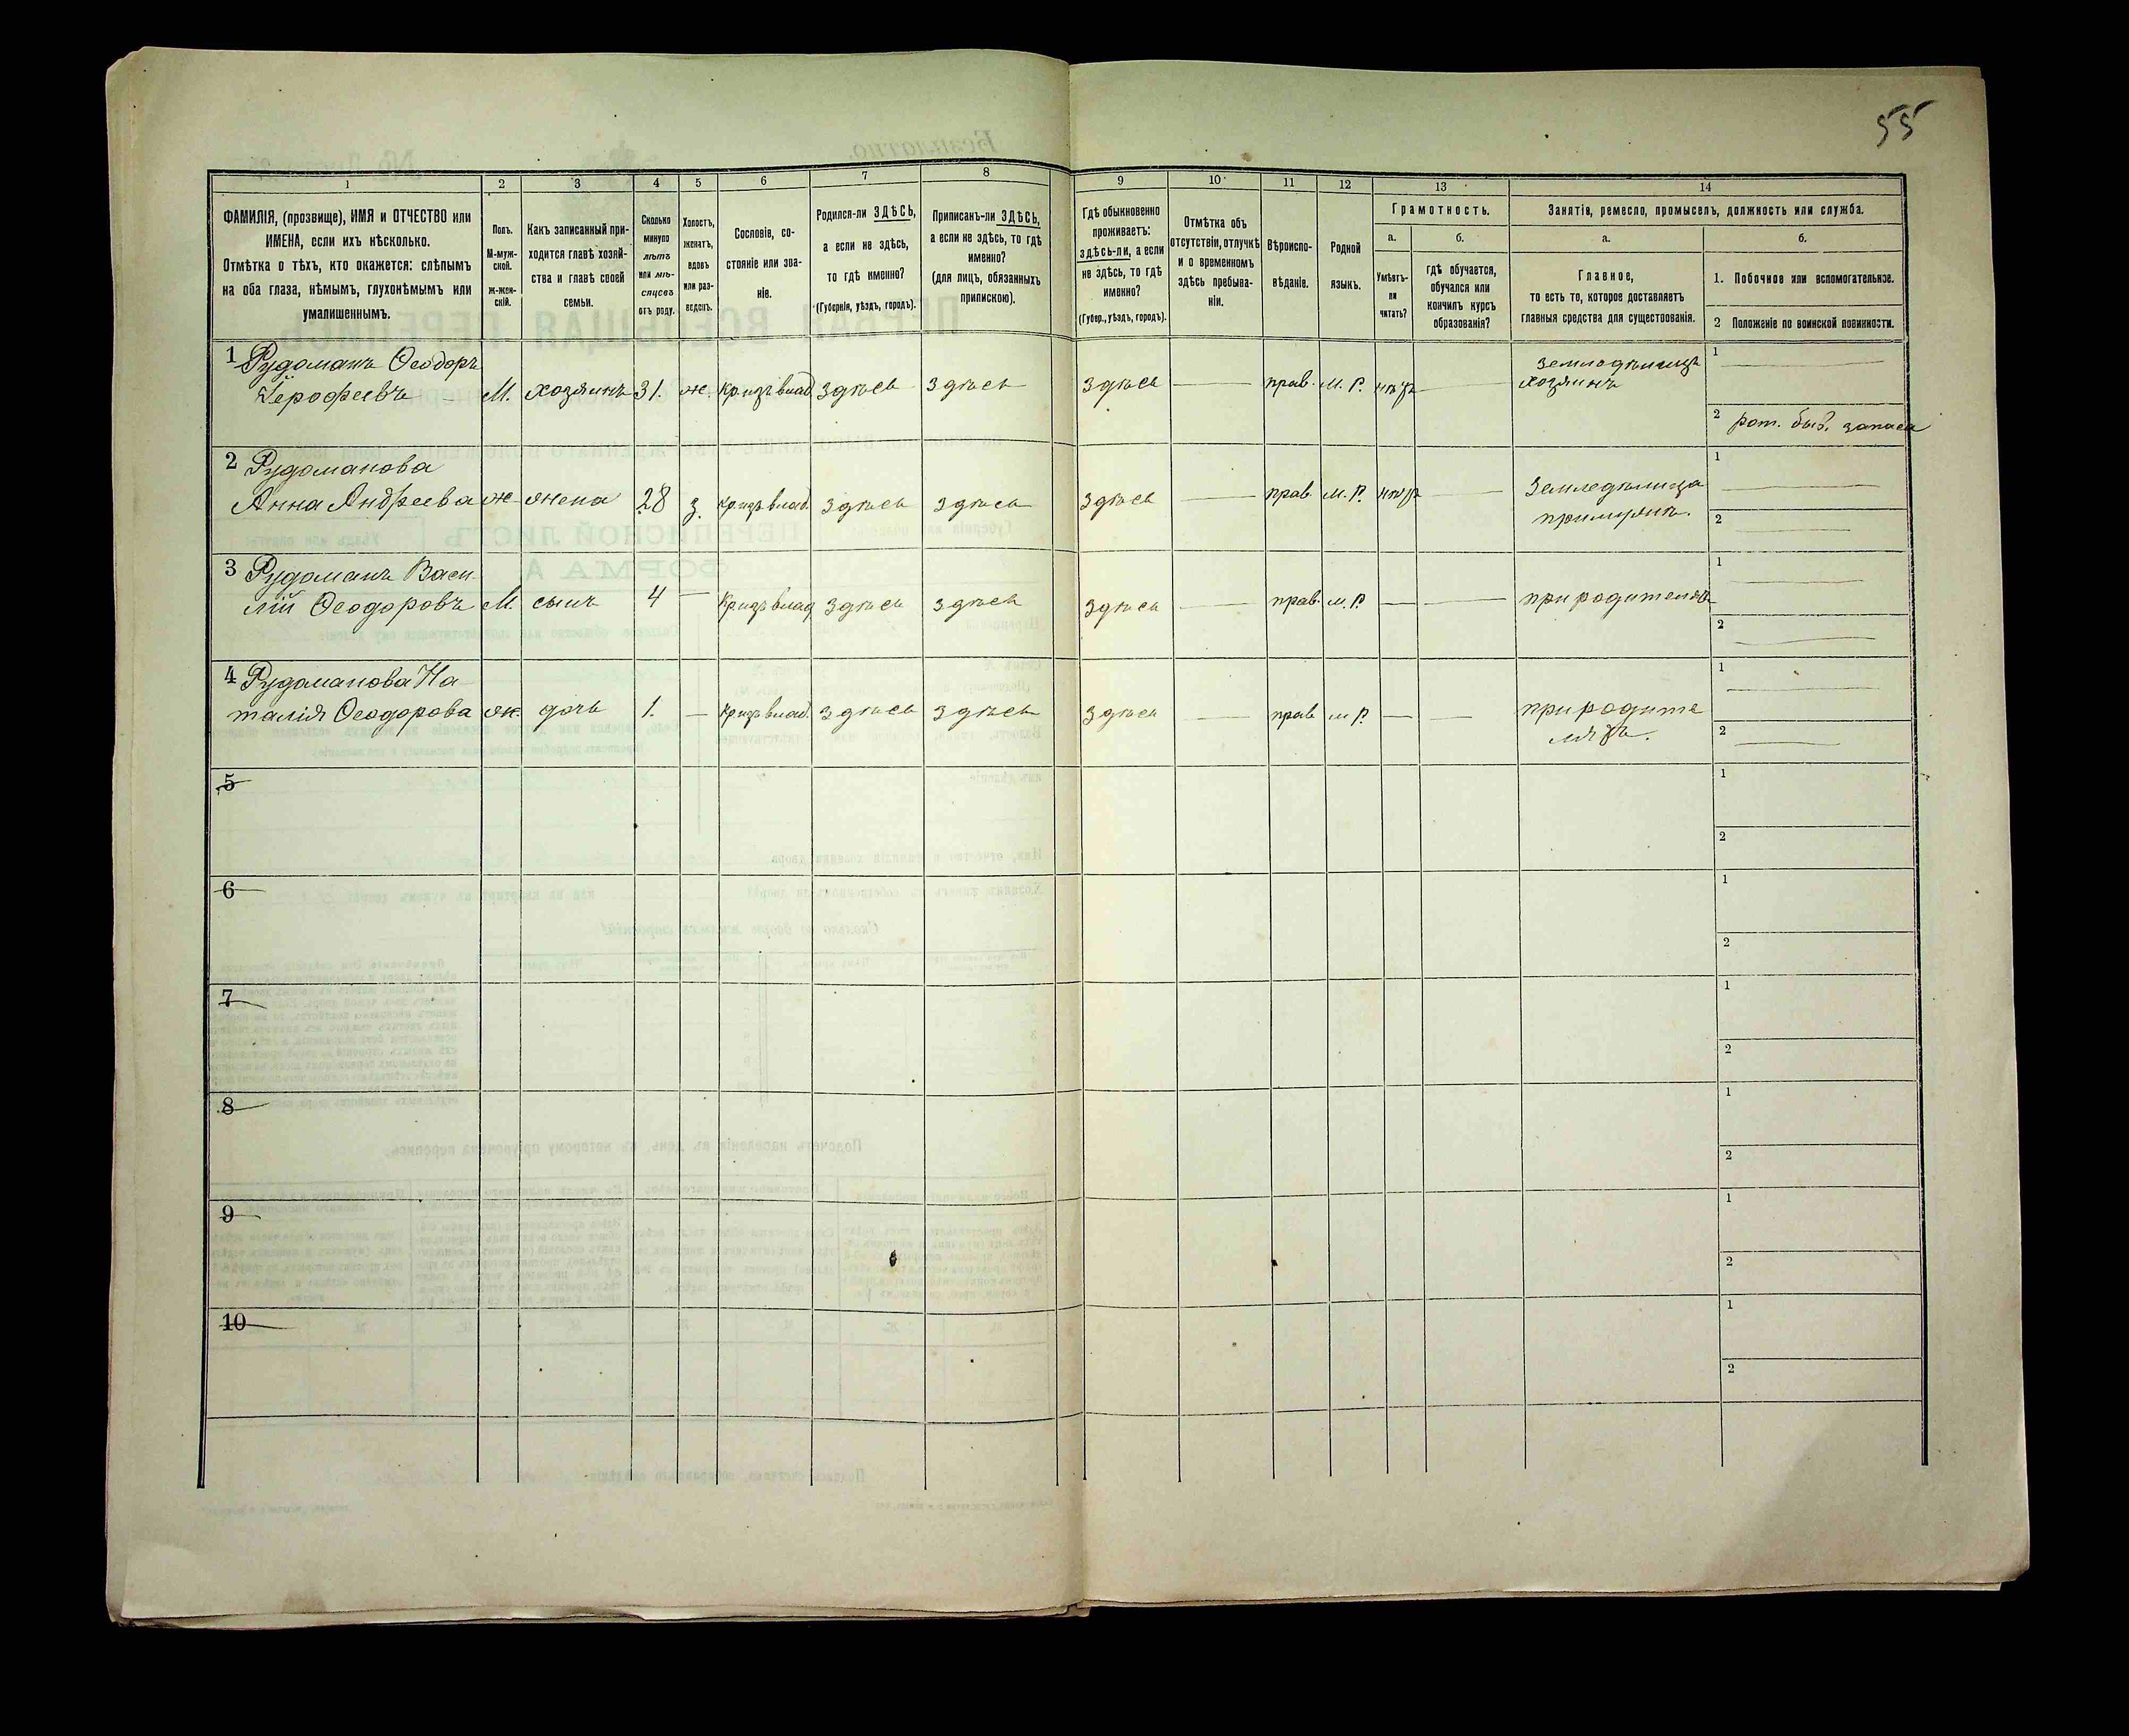 55
1 2 3 4 5 6 7 8 9 10 11 12 13 14
ФАМИЛІЯ, (прозвище), ИМЯ и ОТЧЕСТВО или
ИМЕНА, если ихъ нѣсколько.
Отмѣтка о тѣхъ, кто окажется: слѣпымъ
на оба глаза, нѣмымъ, глухонѣмымъ или
умалишеннымъ.
Полъ.
М-муж-
ской.
ж-жен-
скій.
Какъ записанный при-
ходится главѣ хозяй-
ства и главѣ своей
семьи.
Сколько
минуло
лѣтъ
или мѣ-
сяцевъ
отъ роду.
Холостъ,
женатъ,
вдовъ
или раз-
веденъ.
Сословіе, со-
стояніе или зва-
ніе.
Родился-ли ЗДѢСЬ,
а если не здѣсь,
то гдѣ именно?
(Губернія, уѣздъ, городъ).
Приписанъ-ли ЗДѢСЬ,
а если не здѣсь, то гдѣ
именно?
(для лицъ, обязанныхъ
припискою).
Гдѣ обыкновенно
проживаетъ:
здѣсь-ли, а если
не здѣсь, то гдѣ
именно?
(Губер., уѣздъ, городъ).
Отмѣтка объ
отсутствіи, отлучкѣ
и о временномъ
здѣсь пребыва-
ніи.
Вѣроиспо-
вѣданіе.
Родной
языкъ.
Грамотность.
а.
Умѣетъ-
ли
читать?
б.
гдѣ обучается,
обучался или
кончилъ курсъ
образованія?
Занятіе, ремесло, промыселъ, должность или служба.
а.
Главное,
то есть то, которое доставляетъ
главныя средства для существованія.
б.
1. Побочное или вспомогательное.
2 Положеніе по воинской повинности.
1 Рудоманъ Ѳеодоръ
Ерофеевъ М. хозяинъ 31. ж. Кр. изъ влад. здѣсь здѣсь здѣсь — прав. М. Р. нѣтъ — хозяинъ 1 —
2 запаса
2 Рудоманова
Анна Андреева ж жена 28 з. Кр. изъ влад. здѣсь здѣсь здѣсь — прав. М. Р. нѣтъ — Земледѣлица 1 —
2 —
3 Рудоманъ Васи-
лій Ѳеодоровъ М. сынъ 4 — Кр. изъ влад здѣсь здѣсь здѣсь — прав. М. Р. — — при родителяхъ 1 —
2 —
4 Рудоманова На-
талія Ѳеодорова ж. дочь 1. — Кр. изъ влад. здѣсь здѣсь здѣсь — прав М Р. — — при родите 1 —
ляхъ. 2 —
5 1
2
6 1
2
7 1
2
8 1
2
9 1
2
10 1
2